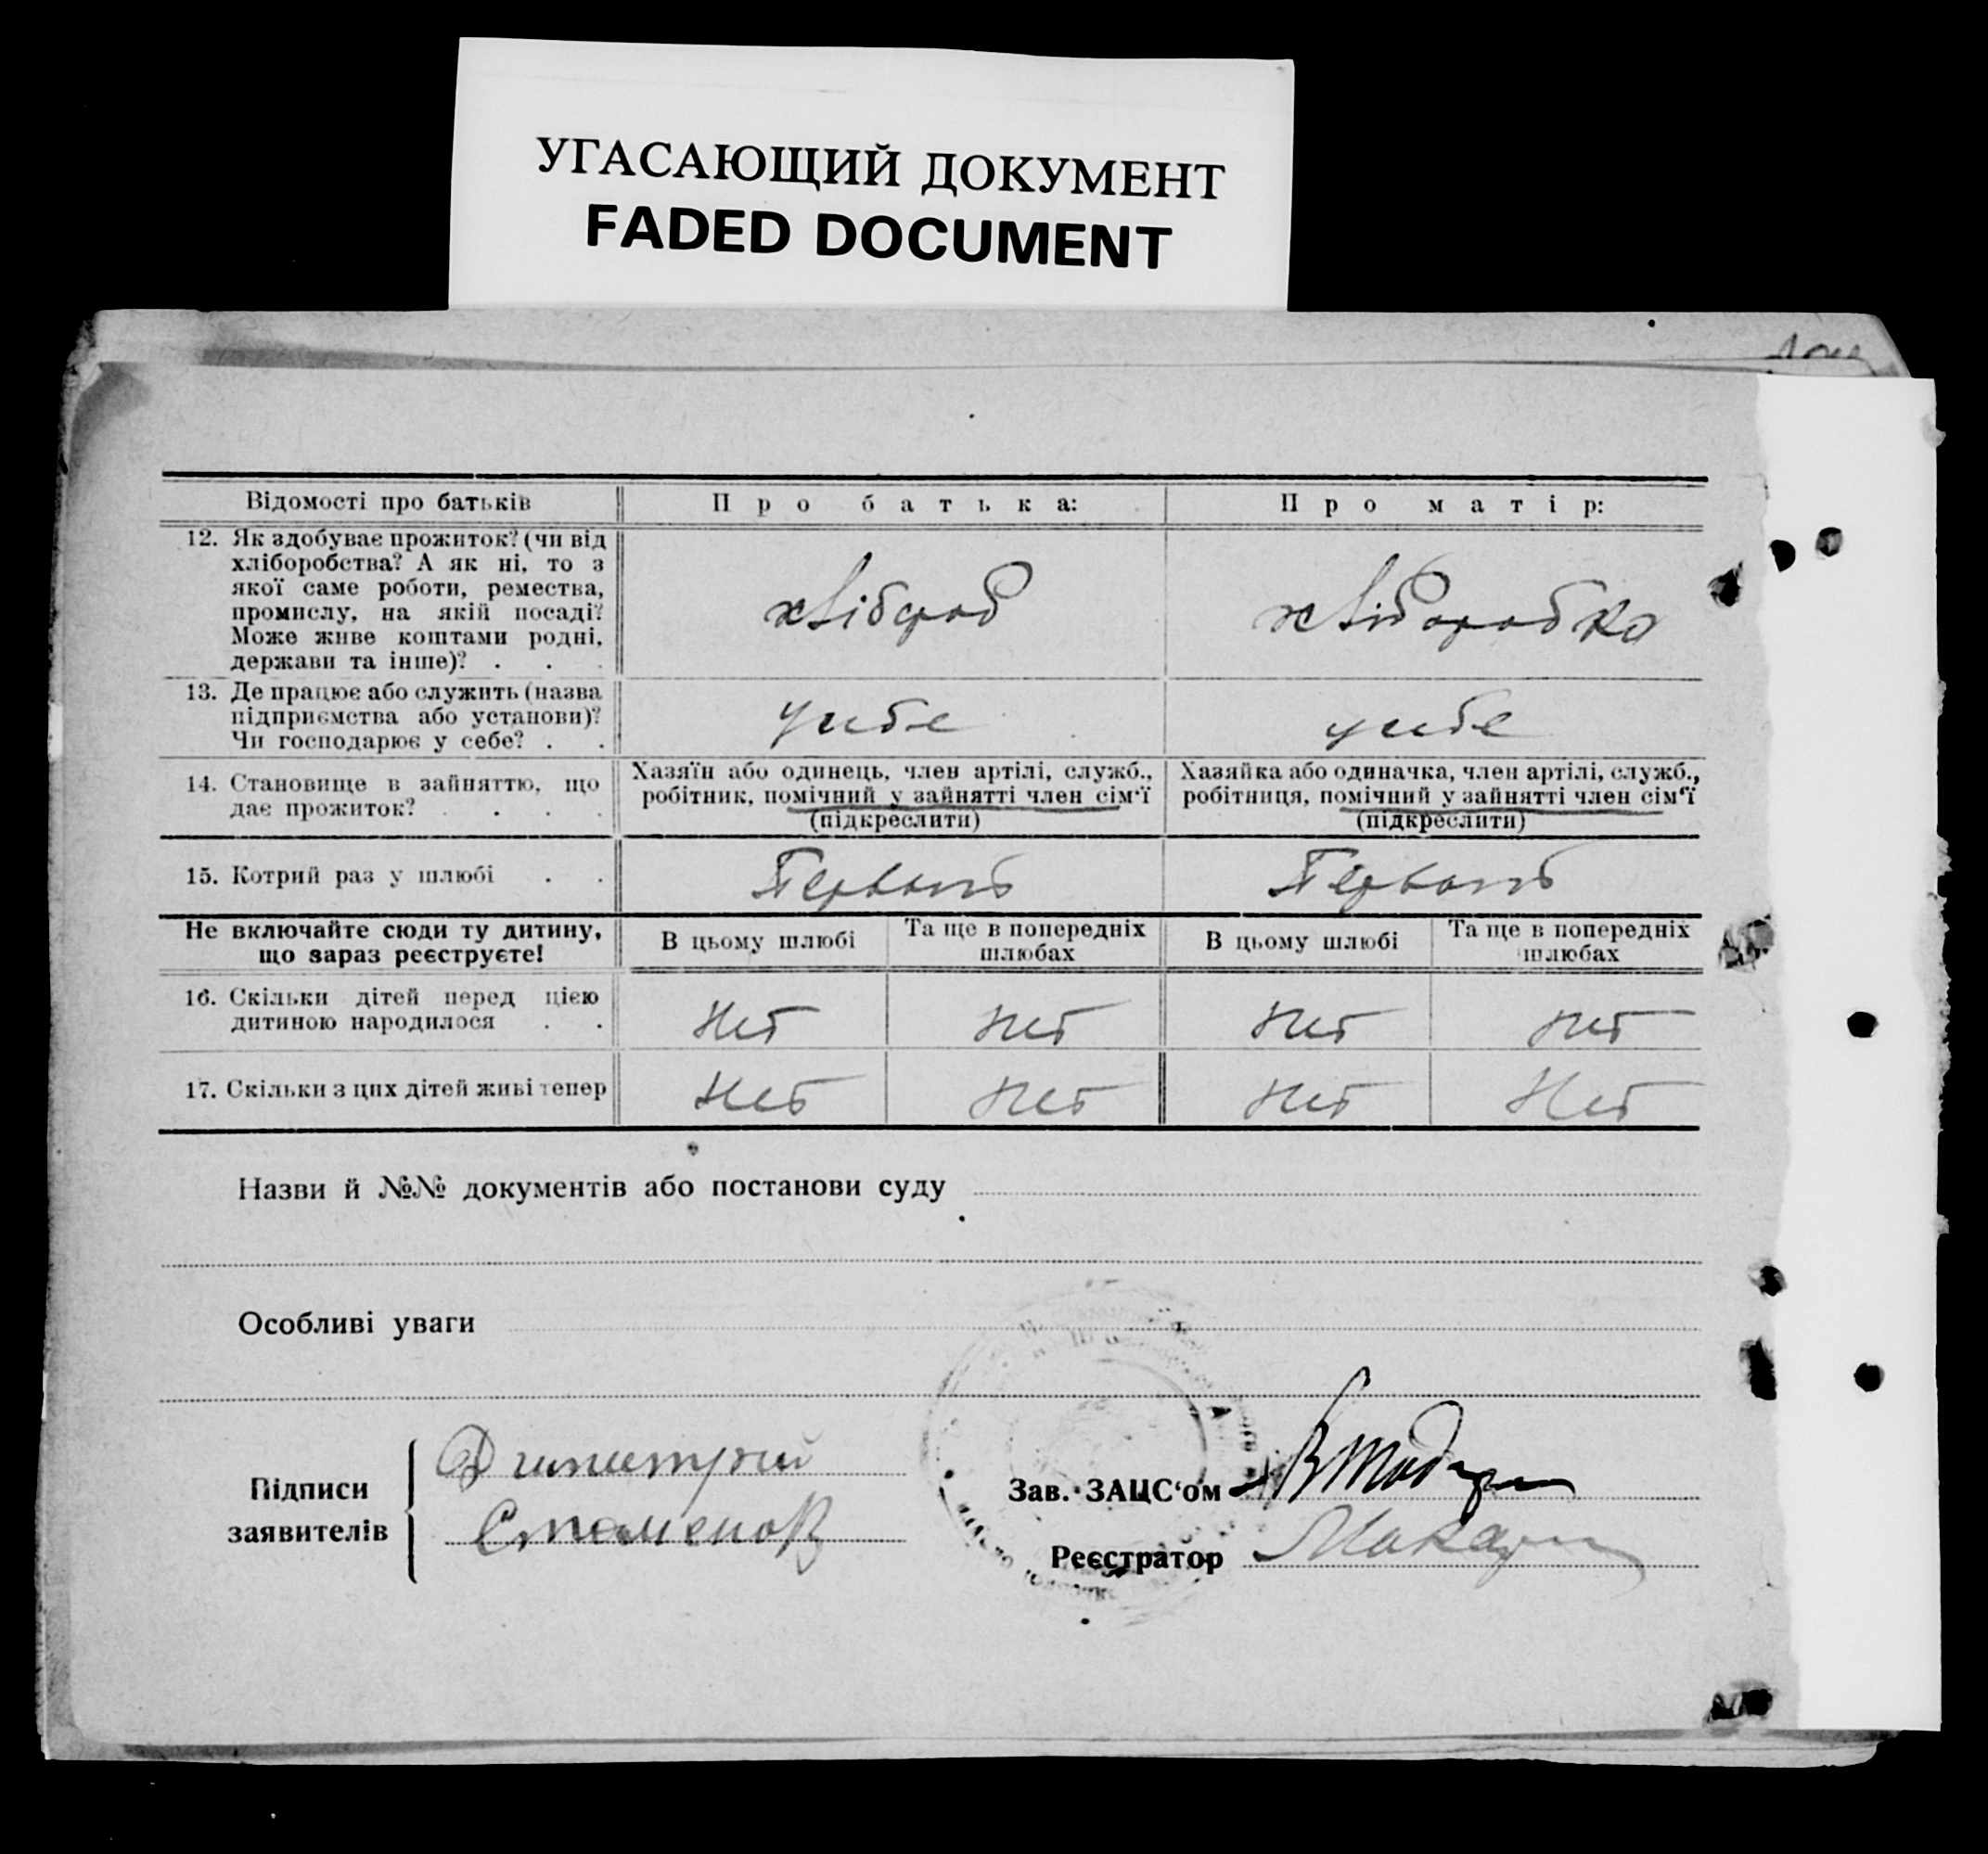 УГАСАЮЩИЙ ДОКУМЕНТ
FADED DOCUMENT
Відомості про батьків
Про батька:
Про матір:
12. Як здобуває прожиток? (чи від
хліборобства? А як ні, то з
якої саме роботи, ремества,
промислу, на якій посаді?
Може живе коштами родні,
держави та інше)? . . .
хлібороб
хлiборобка
13. Де працює або служить (назва
підприємства або установи)?
Чи господарює у себе? . .
усибе
усибе
14. Становище в зайняттю, що
дає прожиток? . . . .
Хазяїн або одинець, член артілі, служб.,
робітник, помічний у зайнятті член сім'ї
(підкреслити)
Хазяйка або одиначка, член артілі, служб.,
робітниця, помічний у зайнятті член сім'ї
(підкреслити)
15. Котрий раз у шлюбі . .
Не включайте сюди ту дитину,
що зараз реєструєте!
В цьому шлюбі
Та ще в попередніх
шлюбах
В цьому шлюбі
Та ще в попередніх
шлюбах
16. Скільки дітей перед цією
дитиною народилося . .
Нет
Нет
Нет
Нет
17. Скільки з цих дітей живі тепер
Нет
Нет
Нет
Нет
Назви й №№ документів або постанови суду
Особливі уваги
Підписи
заявителів
Димитрий
Стаменов
Зав. ЗАЦС'ом
Реєстратор